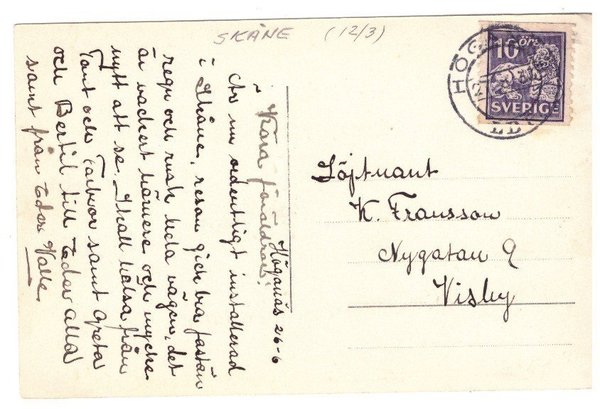 SKÅNE (12/3)
10 ÖRE
SVERIGE
HÖGANÄS
LBR
Höganäs 26-6
Kära föräldrar!
Är nu ordentligt installerad
i Skåne, resan gick bra, fastän
regn och rusk hela vägen, det
är vackert härnere och mycke
nytt att se. Skall hälsa från
Tant och farbror samt Greta
och Bertil till Eder alla
samt från Eder Valle.
Löjtnant
K. Fransson
Nygatan 9
Visby